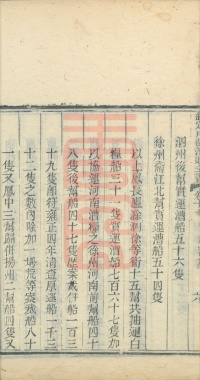 泗州後幫實運漕船五十六隻
徐州衛江北幫實運漕船五十四隻
以上武長廬滁泗徐等衛十五幫共抽運白
糧船三十一隻實運漕船七百六十七隻加
以協運河南漕糧之徐州河南前幫船四十
八隻後幫船四十七隻原案裁併船一百三
十九隻船符雍正四年清查原運船一千三
十二隻之數內除加一場荒等案殘船八十
一隻又鳳中三幫歸併揚州二幫船四隻又